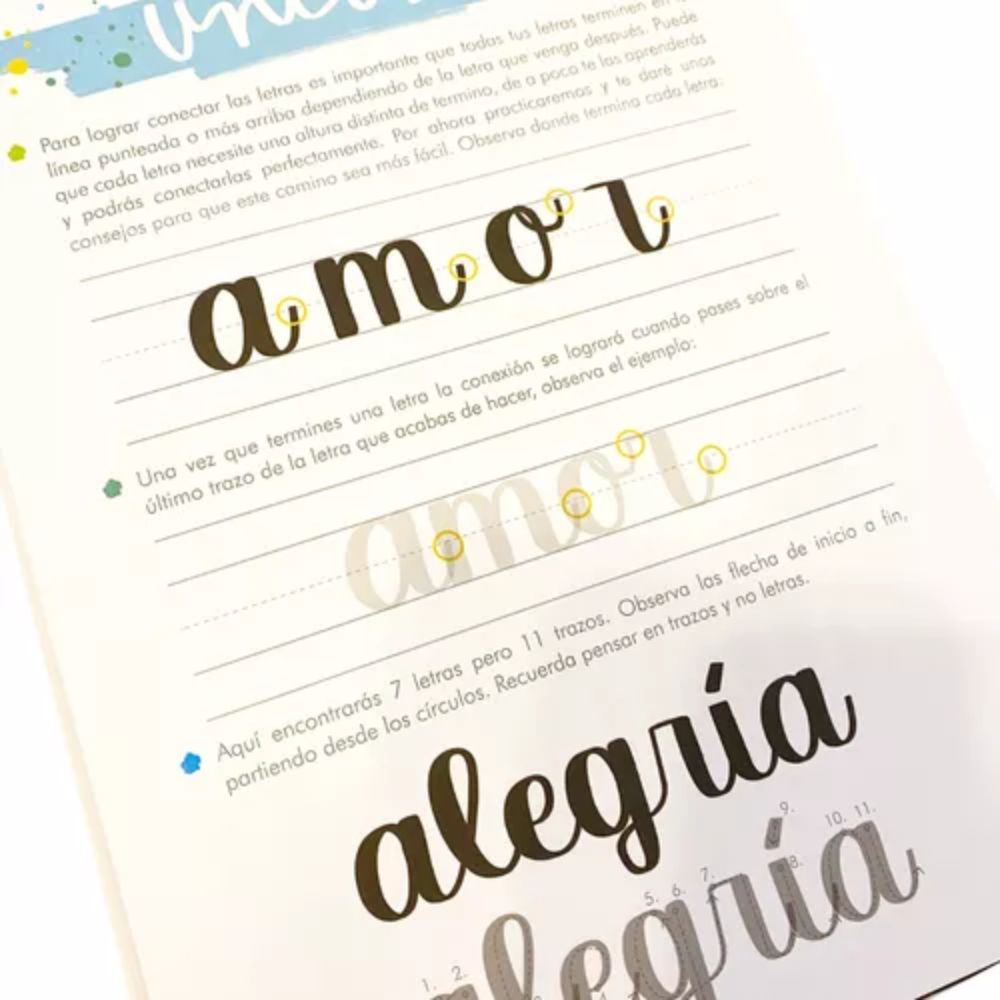 Para lograr conectar las letras es importante que todas tus letras terminen en
línea punteada o más arriba dependiendo de la letra que venga después. Puede
que cada letra necesite una altura distinta de termino, de a poco te las aprenderás
y podrás conectarlas perfectamente. Por ahora practicaremos y te daré unos
consejos para que este camino sea más fácil. Observa donde termina cada letra:
amor
Una vez que termines una letra la conexión se logrará cuando pases sobre el
último trazo de la letra que acabas de hacer, observa el ejemplo:
amor
Aquí encontrarás 7 letras pero 11 trazos. Observa las flecha de inicio a fin,
partiendo desde los círculos. Recuerda pensar en trazos y no letras.
alegría
1. 2. 5. 6. 7. 8. 9. 10. 11.
alegría